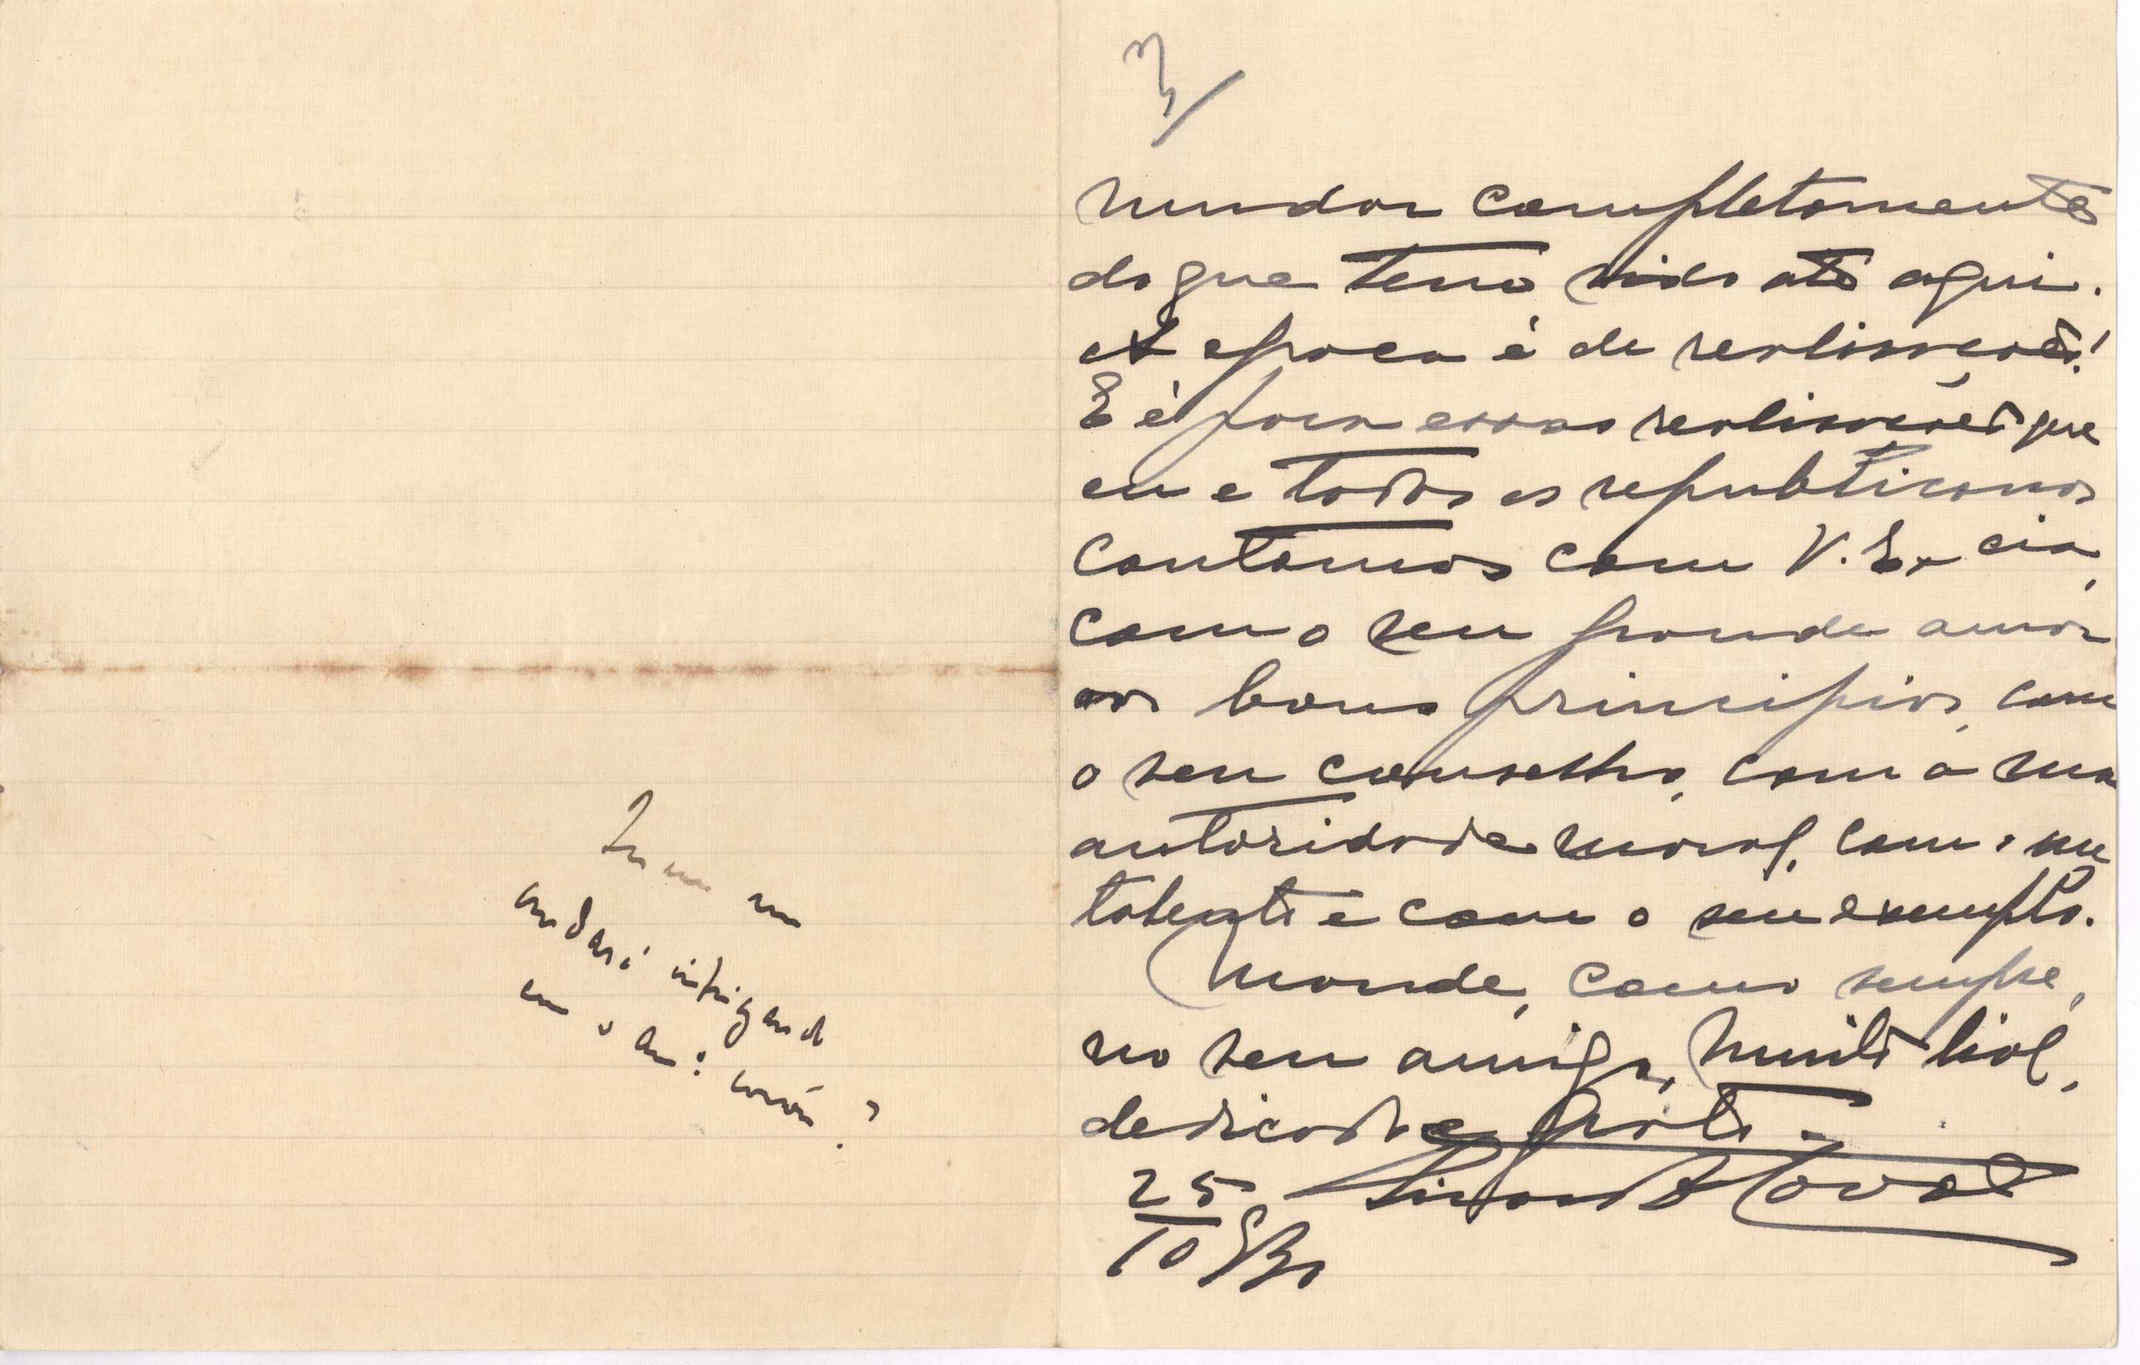 andará intrigando
3/
mudar completamente
do que tem sido até aqui.
A epoca é de realisações!
E é para essas realisações que
eu e todos os republicanos
contamos com V. Ex.cia,
com o seu grande amor
aos bons principios, com
o seu conselho, com a sua
autoridade moral, com o seu
talento e com o seu exemplo.
Mande, como sempre,
no seu amigo, muito leal,
dedicado e grato.
25
10